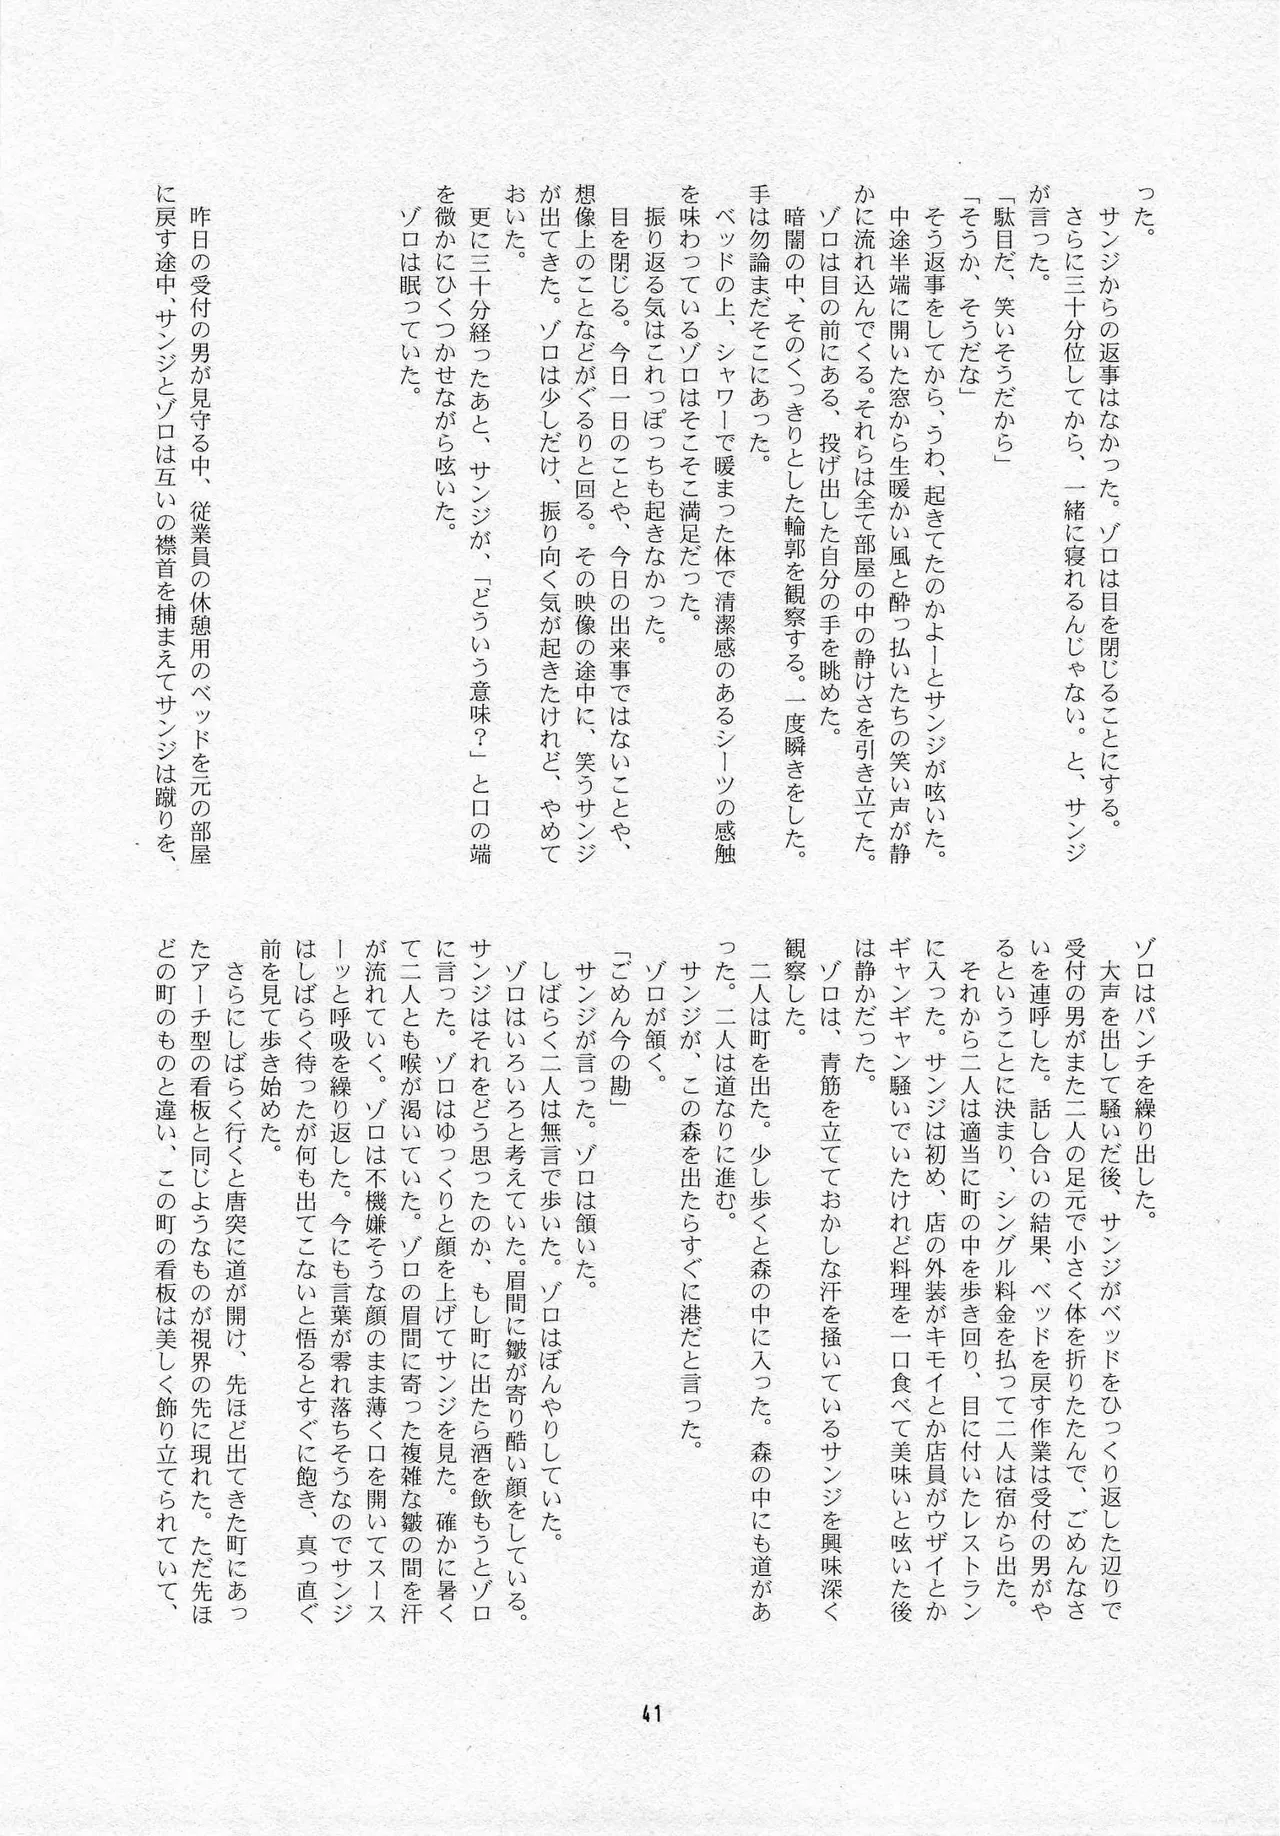 った。
　サンジからの返事はなかった。ゾロは目を閉じることにする。
　さらに三十分位してから、一緒に寝れるんじゃない。と、サンジ
が言った。
「駄目だ、笑いそうだから」
「そうか、そうだな」
　そう返事をしてから、うわ、起きてたのかよーとサンジが呟いた。
　中途半端に開いた窓から生暖かい風と酔っ払いたちの笑い声が静
かに流れ込んでくる。それらは全て部屋の中の静けさを引き立てた。
　ゾロは目の前にある、投げ出した自分の手を眺めた。
　暗闇の中、そのくっきりとした輪郭を観察する。一度瞬きをした。
手は勿論まだそこにあった。
　ベッドの上、シャワーで暖まった体で清潔感のあるシーツの感触
を味わっているゾロはそこそこ満足だった。
　振り返る気はこれっぽっちも起きなかった。
　目を閉じる。今日一日のことや、今日の出来事ではないことや、
想像上のことなどがぐるりと回る。その映像の途中に、笑うサンジ
が出てきた。ゾロは少しだけ、振り向く気が起きたけれど、やめて
おいた。
　更に三十分経ったあと、サンジが、「どういう意味？」と口の端
を微かにひくつかせながら呟いた。
　ゾロは眠っていた。
　昨日の受付の男が見守る中、従業員の休憩用のベッドを元の部屋
に戻す途中、サンジとゾロは互いの襟首を捕まえてサンジは蹴りを、
ゾロはパンチを繰り出した。
　大声を出して騒いだ後、サンジがベッドをひっくり返した辺りで
受付の男がまた二人の足元で小さく体を折りたたんで、ごめんなさ
いを連呼した。話し合いの結果、ベッドを戻す作業は受付の男がや
るということに決まり、シングル料金を払って二人は宿から出た。
　それから二人は適当に町の中を歩き回り、目に付いたレストラン
に入った。サンジは初め、店の外装がキモイとか店員がウザイとか
ギャンギャン騒いでいたけれど料理を一口食べて美味いと呟いた後
は静かだった。
　ゾロは、青筋を立てておかしな汗を掻いているサンジを興味深く
観察した。
　二人は町を出た。少し歩くと森の中に入った。森の中にも道があ
った。二人は道なりに進む。
　サンジが、この森を出たらすぐに港だと言った。
　ゾロが頷く。
「ごめん今の勘」
　サンジが言った。ゾロは頷いた。
　しばらく二人は無言で歩いた。ゾロはぼんやりしていた。
　ゾロはいろいろと考えていた。眉間に皺が寄り酷い顔をしている。
サンジはそれをどう思ったのか、もし町に出たら酒を飲もうとゾロ
に言った。ゾロはゆっくりと顔を上げてサンジを見た。確かに暑く
て二人とも喉が渇いていた。ゾロの眉間に寄った複雑な皺の間を汗
が流れていく。ゾロは不機嫌そうな顔のまま薄く口を開いてスース
ーッと呼吸を繰り返した。今にも言葉が零れ落ちそうなのでサンジ
はしばらく待ったが何も出てこないと悟るとすぐに飽き、真っ直ぐ
前を見て歩き始めた。
　さらにしばらく行くと唐突に道が開け、先ほど出てきた町にあっ
たアーチ型の看板と同じようなものが視界の先に現れた。ただ先ほ
どの町のものと違い、この町の看板は美しく飾り立てられていて、
41